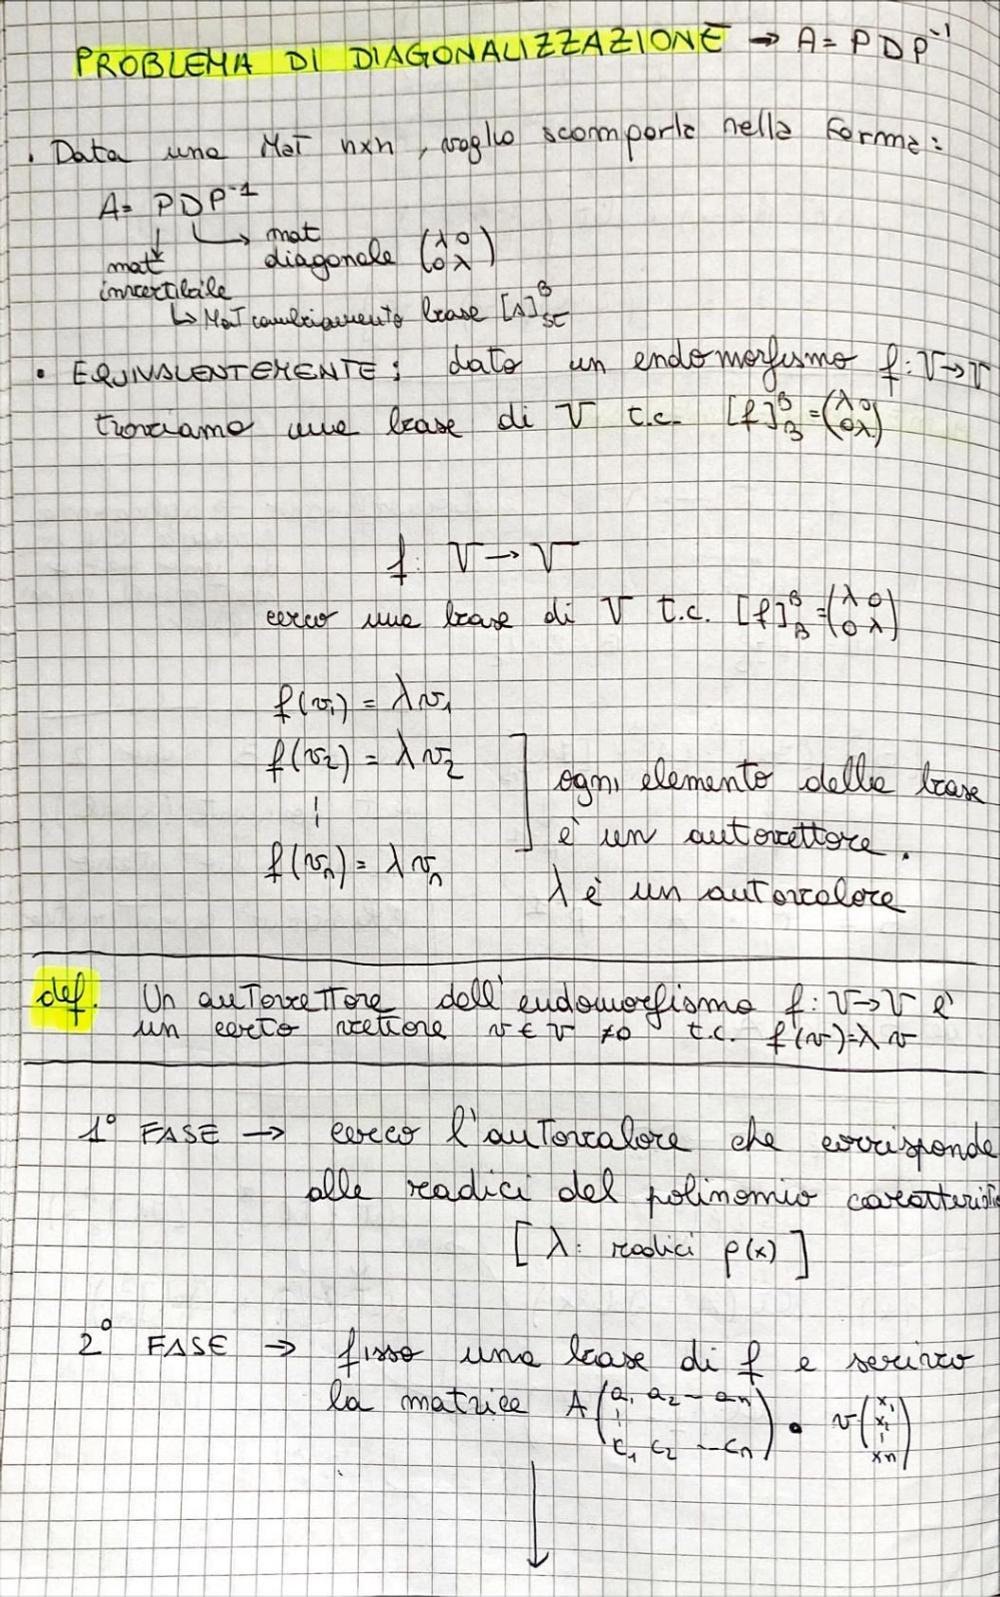 PROBLEMA DI DIAGONALIZZAZIONE → A = P D P⁻¹
• Data una Mat nxn, voglio scomporla nella forma:
A = PDP⁻¹
↓ ↳ mat diagonale (λ 0 / 0 λ)
mat invertibile
↳ Mat cambiamento base [Λ]ᴮ_SC
• EQUIVALENTEMENTE: dato un endomorfismo f: V→V
troviamo una base di V t.c. [f]ᴮ_B = (λ 0 / 0 λ)
f: V → V
cerco una base di V t.c. [f]ᴮ_B = (λ 0 / 0 λ)
f(v₁) = λv₁
f(v₂) = λv₂
¦
f(vₙ) = λvₙ
] ogni elemento della base
è un autovettore.
λ è un autovalore
def. Un autovettore dell'endomorfismo f: V→V è
un certo vettore v ∈ V ≠0 t.c. f(v)=λv
1° FASE → cerco l'autovalore che corrisponde
alle radici del polinomio caratteristi
[λ: radici p(x)]
2° FASE → fisso una base di f e scrivo
la matrice A (a₁ a₂ – aₙ / ¦ / c₁ c₂ -- cₙ) • v (x₁ / x₂ / ¦ / xn)
↓